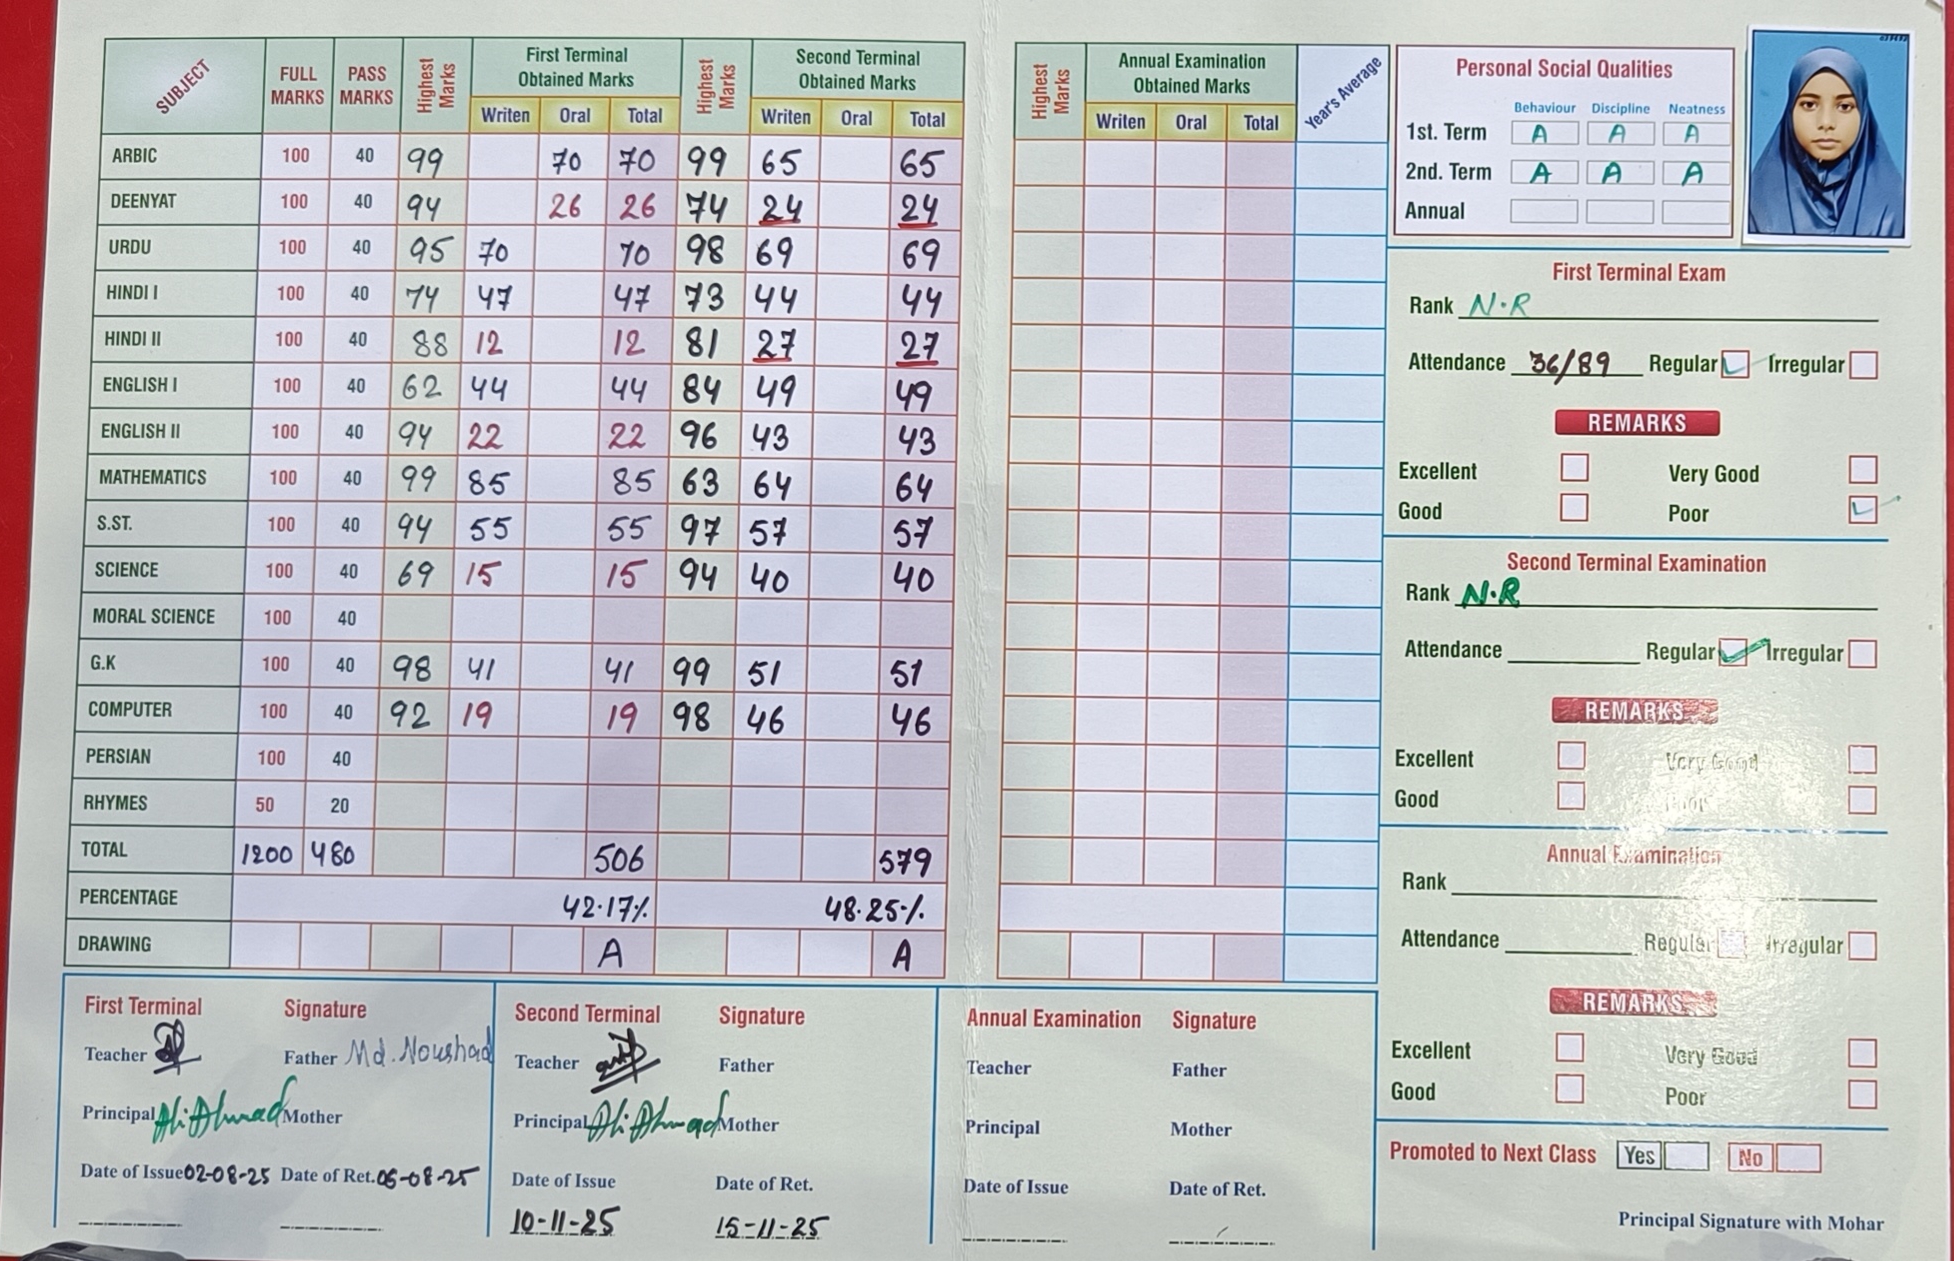 SUBJECT FULL MARKS PASS MARKS Highest Marks First Terminal Obtained Marks Highest Marks Second Terminal Obtained Marks
Writen Oral Total Writen Oral Total
ARBIC 100 40 99 70 70 99 65 65
DEENYAT 100 40 94 26 26 74 24 24
URDU 100 40 95 70 70 98 69 69
HINDI I 100 40 74 47 47 73 44 44
HINDI II 100 40 88 12 12 81 27 27
ENGLISH I 100 40 62 44 44 84 49 49
ENGLISH II 100 40 94 22 22 96 43 43
MATHEMATICS 100 40 99 85 85 63 64 64
S.ST. 100 40 94 55 55 97 57 57
SCIENCE 100 40 69 15 15 94 40 40
MORAL SCIENCE 100 40
G.K 100 40 98 41 41 99 51 51
COMPUTER 100 40 92 19 19 98 46 46
PERSIAN 100 40
RHYMES 50 20
TOTAL 1200 480 506 579
PERCENTAGE 42.17% 48.25%
DRAWING A A
Highest Marks Annual Examination Obtained Marks Year's Average
Writen Oral Total
Personal Social Qualities
Behaviour Discipline Neatness
1st. Term A A A
2nd. Term A A A
Annual
First Terminal Exam
Rank N.R
Attendance 36/89 Regular Irregular
REMARKS
Excellent Very Good
Good Poor
Second Terminal Examination
Rank N.R
Attendance Regular Irregular
REMARKS
Excellent Very Good
Good Poor
Annual Examination
Rank
Attendance Regular Irregular
REMARKS
Excellent Very Good
Good Poor
Promoted to Next Class Yes No
Principal Signature with Mohar
First Terminal Signature
Teacher Father Md. Noushad
Principal Ali Ahmad Mother
Date of Issue 02-08-25 Date of Ret. 05-08-25
Second Terminal Signature
Teacher Father
Principal Ali Ahmad Mother
Date of Issue Date of Ret.
10-11-25 15-11-25
Annual Examination Signature
Teacher Father
Principal Mother
Date of Issue Date of Ret.